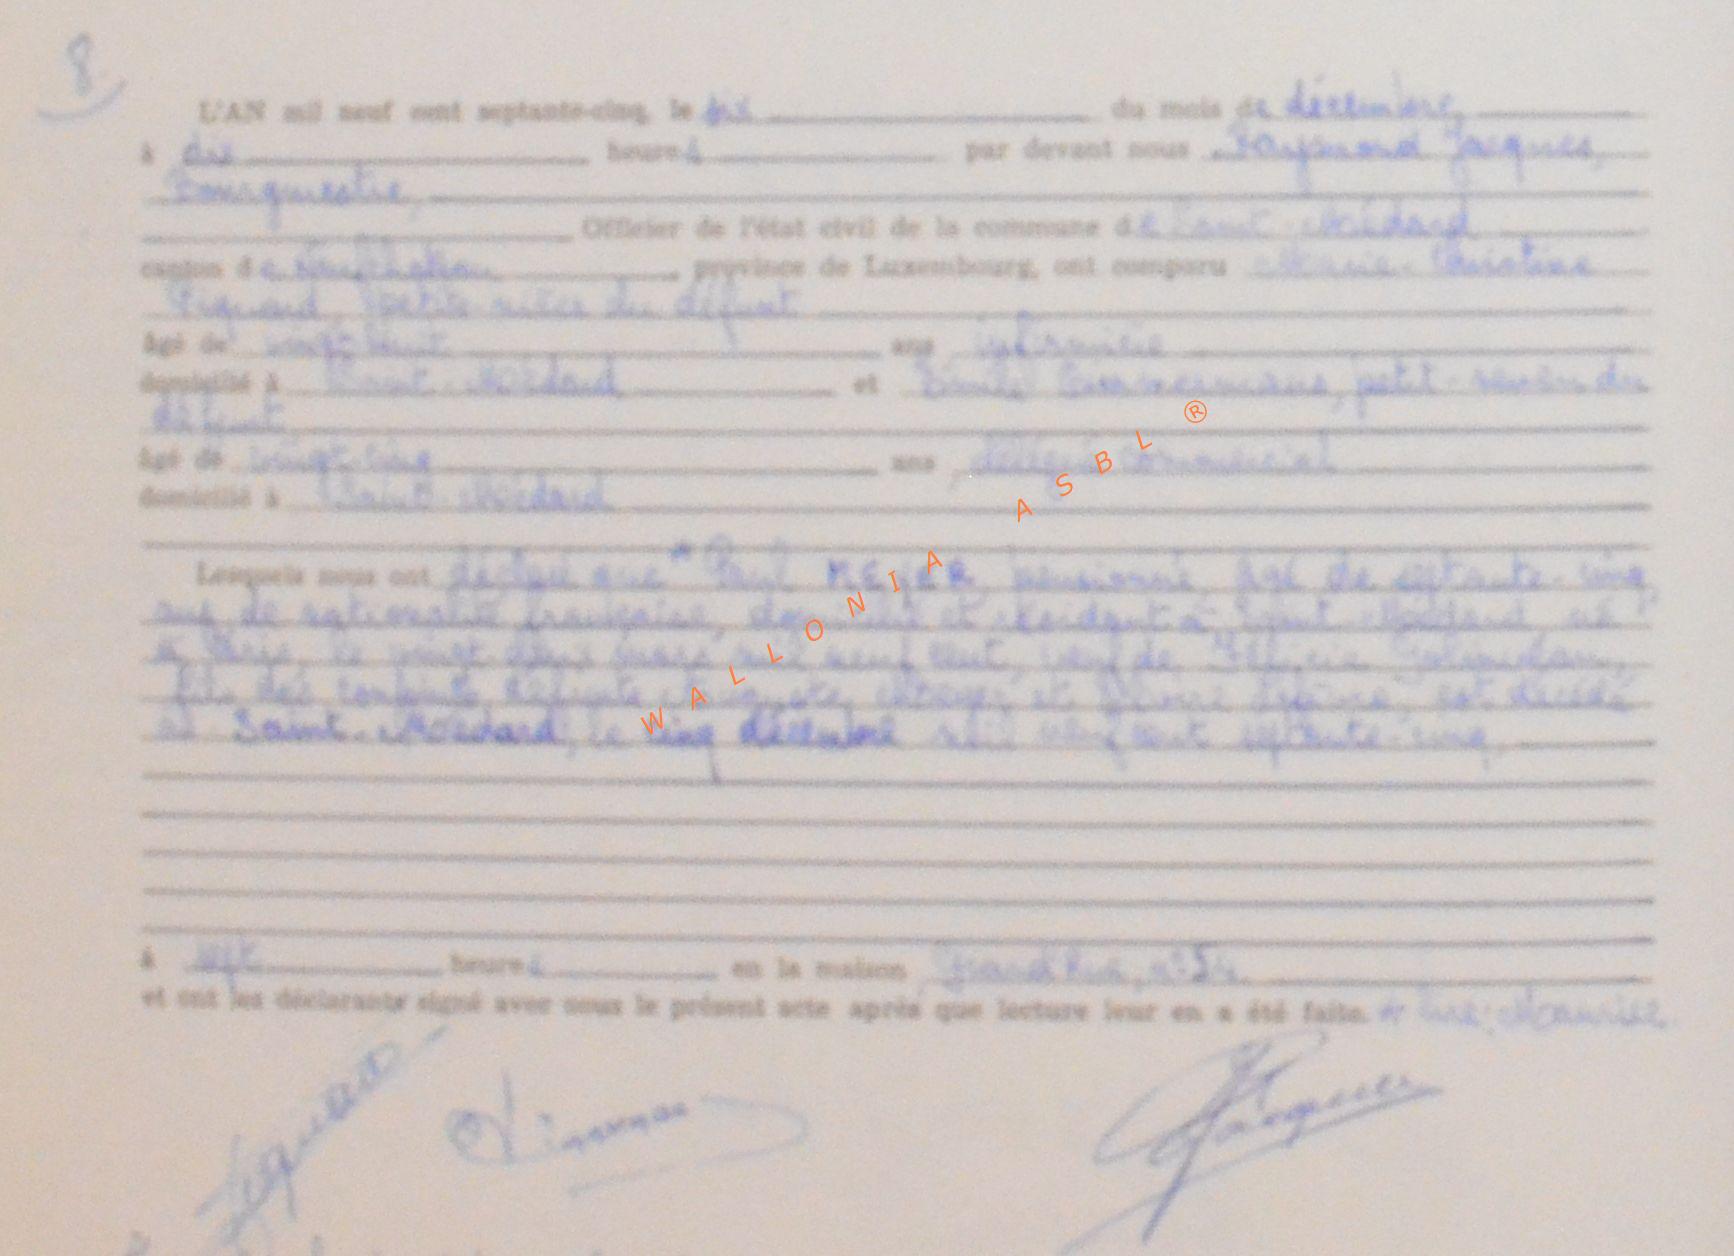 8
L'AN mil neuf cent septante-cinq, le six du mois de décembre,
à dix heures par devant nous Raymond Jacques,
Bourgmestre,
Officier de l'état civil de la commune de Saint-Médard
canton de Neufchâteau, province de Luxembourg, ont comparu Marie-Christine
Pignard, petite-nièce du défunt
âgé de vingt-huit ans infirmière
domicilié à Saint-Médard et petit-neveu du
défunt
âgé de vingt-cinq ans, délégué commercial
domicilié à Saint-Médard
Lesquels nous ont déclaré que * Paul MEYER pensionné, âgé de septante-cinq
ans de nationalité française, domicilié et résidant à Saint-Médard né
à Paris, le vingt deux mars mil neuf cent, veuf de
fils des conjoints défunts et est décédé
à Saint-Médard, le cinq décembre mil neuf cent septante-cinq,
à sept heures en la maison, Grand'Rue, n° 54
et ont les déclarants signé avec nous le présent acte après que lecture leur en a été faite. * lire: Maurice
Jacques
WALLONIA ASBL ®